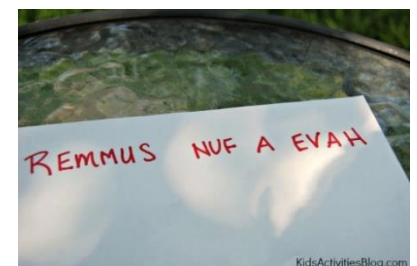 REMMUS NUF A EVAH
KidsActivitiesBlog.com